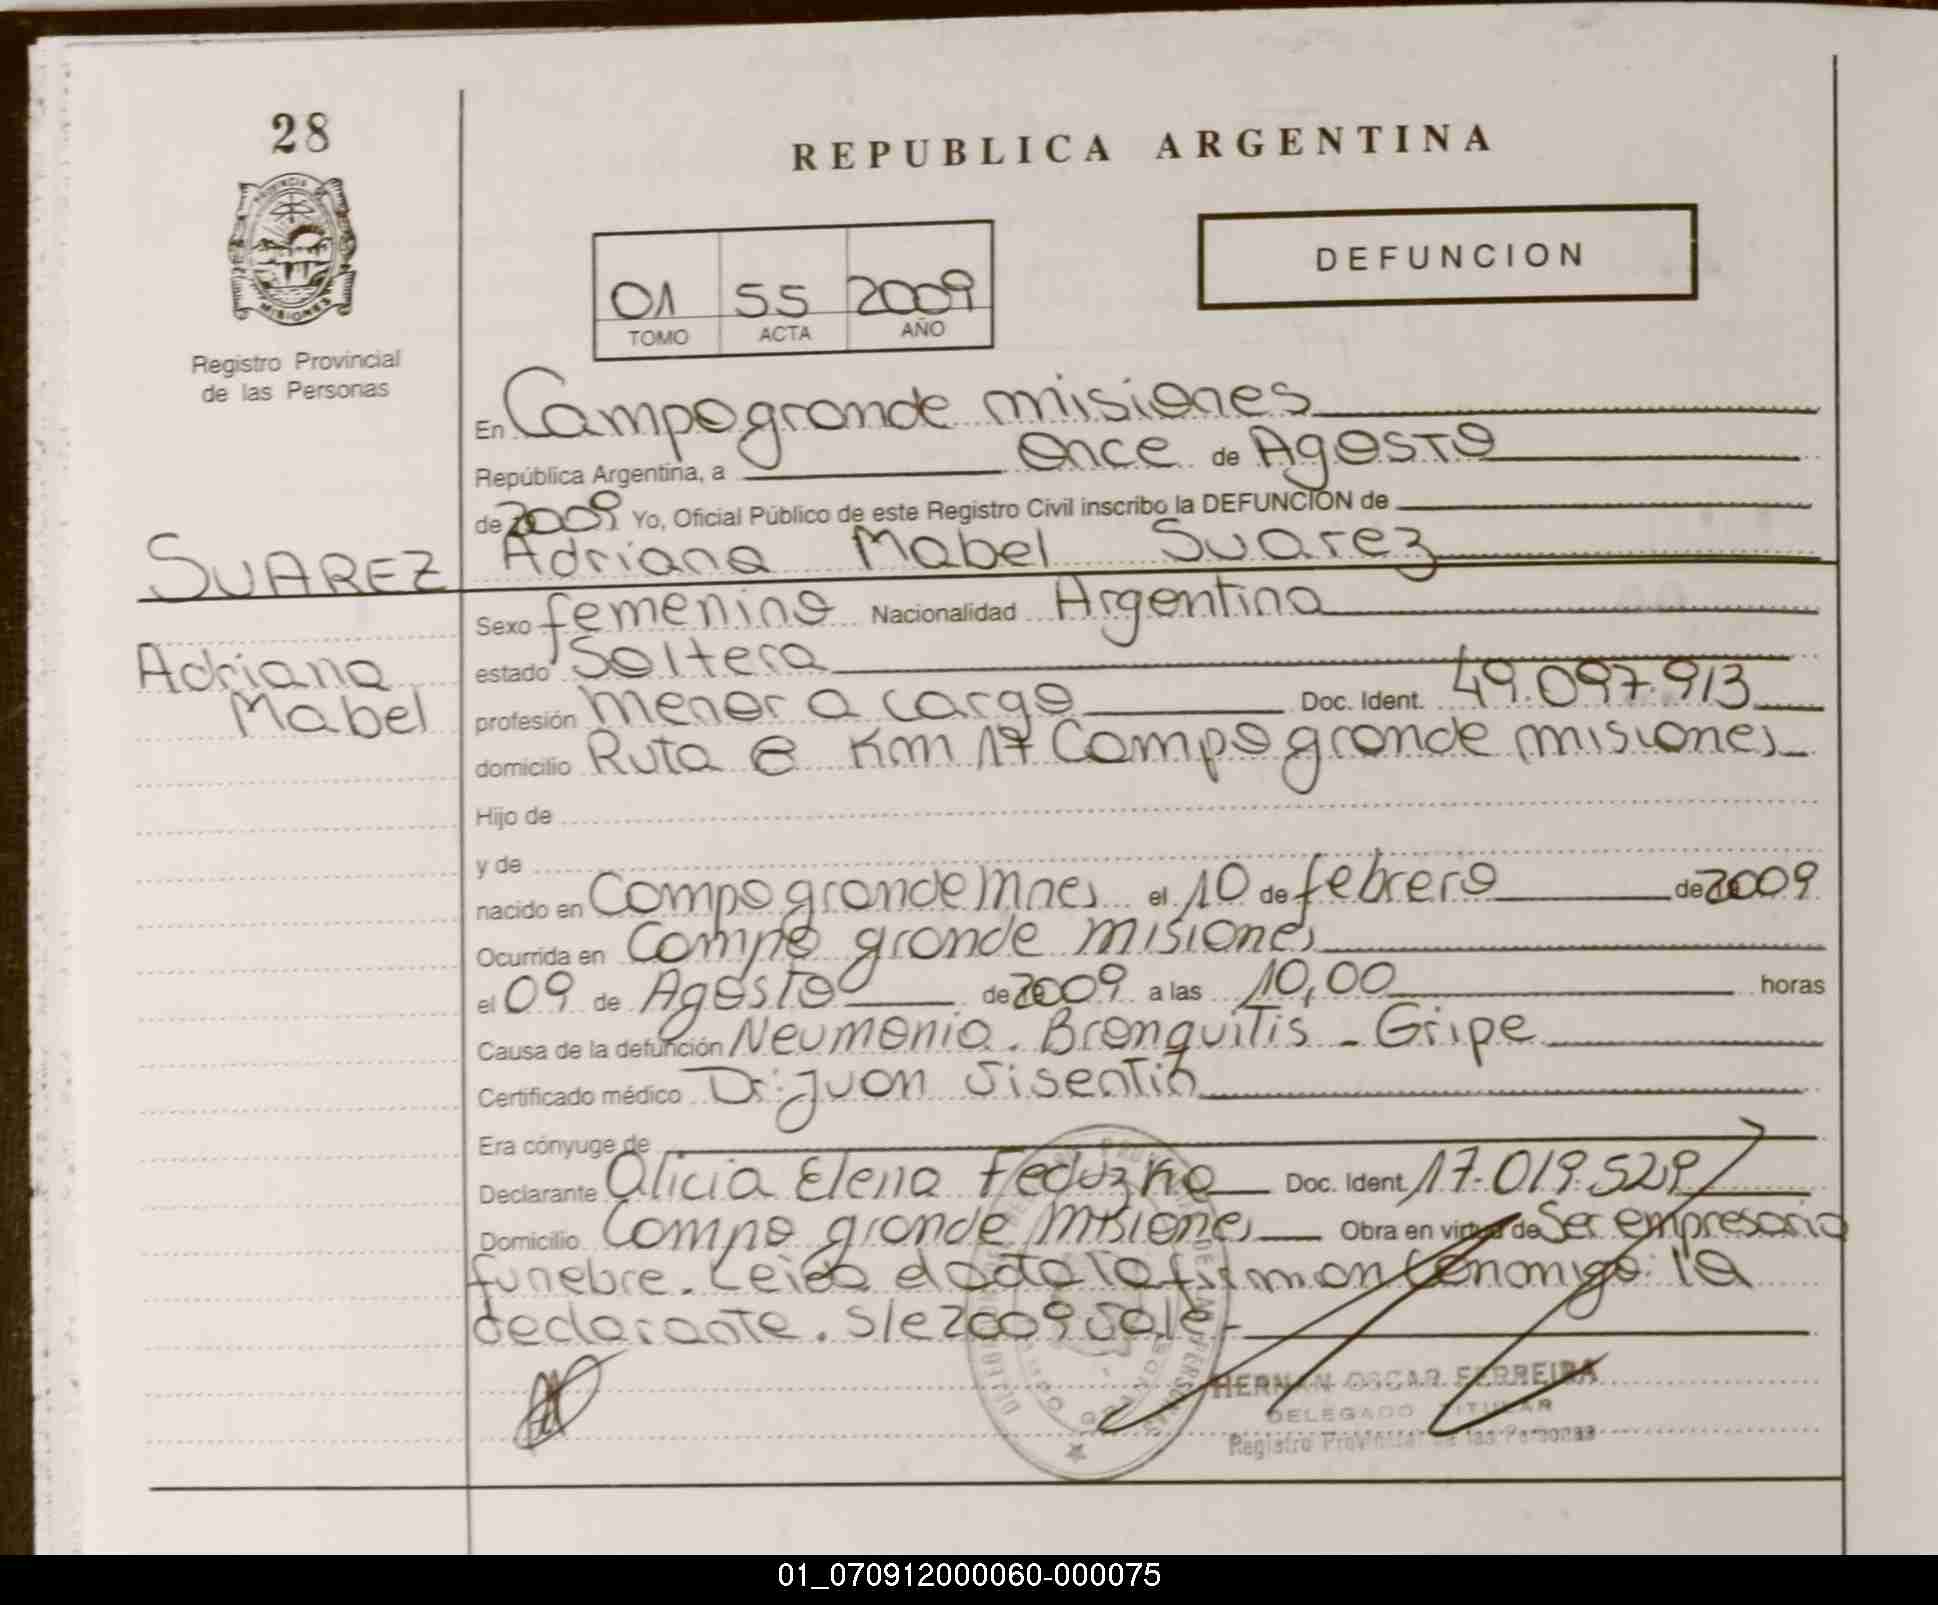 28
REPUBLICA ARGENTINA
PROVINCIA
MISIONES
DEFUNCION
01 55 2009
TOMO ACTA AÑO
Registro Provincial
de las Personas
En Campo grande misiones
República Argentina, a once de Agosto
de 2009 Yo, Oficial Público de este Registro Civil inscribo la DEFUNCION de
SUAREZ Adriana Mabel Suarez
Sexo femenino Nacionalidad Argentina
Adriana
Mabel
estado Soltera
profesión menor a cargo Doc. Ident. 49.097.913
domicilio Ruta 8 Km 17 Campo grande misiones
Hijo de
y de
nacido en Campo grande Mnes el 10 de febrero de 2009
Ocurrida en Campo grande misiones
el 09 de Agosto de 2009 a las 10,00 horas
Causa de la defunción Neumonia. Bronquitis - Gripe
Certificado médico Dr. Juan Sisentin
Era cónyuge de
Declarante Alicia Elena Feduzka Doc. Ident. 17.019.529
Domicilio Campo grande Misiones Obra en virtud de Ser empresaria
funebre. Leida el acta la firman conmigo la
declarante. S/e 2009 Vale-
HERNAN OSCAR FERREIRA
DELEGADO TITULAR
Registro Provincial de las Personas
01_070912000060-000075